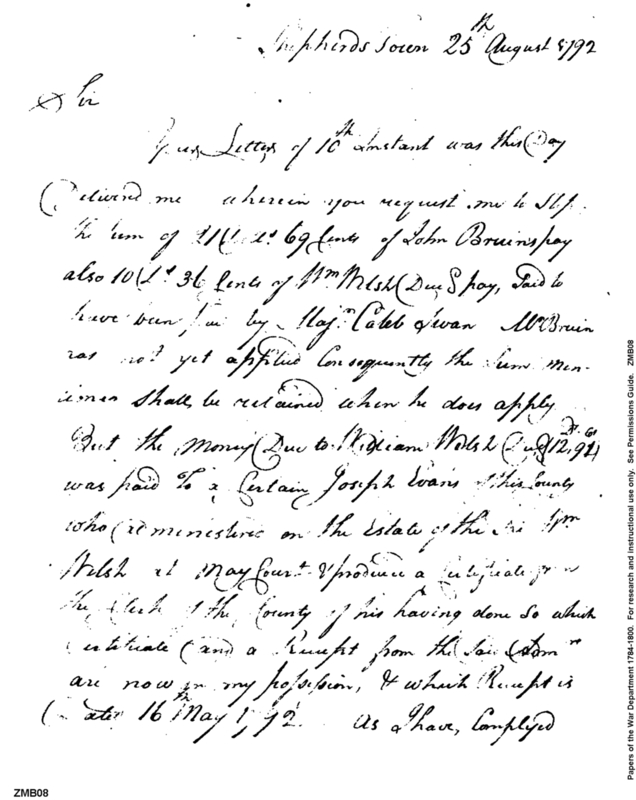 Shepherds Town 25th August 1792
Sir
Your Letter of 10th Instant was this Day
Delivered me wherein you request me to Stop
the Sum of 69 Cents of John Bruins pay
also 10 Ds 36 Cents of Wm Welsh Decd pay, Said to
have been by Majr Caleb Swan Mr Bruin
has not yet applied Consequently the Sum men-
tioned Shall be retained when he does apply
But the Money Due to William Welsh Decd 12,, 91
was paid To a Certain Joseph Evans of this County
who administered on the Estate of the Wm
Welsh at May Court & produced a Certificate from
the Clerk of the County of his having done So which
Certificate and a Receipt from the Said Admr
are now in my possession, & which Receipt is
Dated 16th May 1792. As I have, Complyed
ZMB08
Papers of the War Department 1784-1800. For research and instructional use only. See Permissions Guide. ZMB08